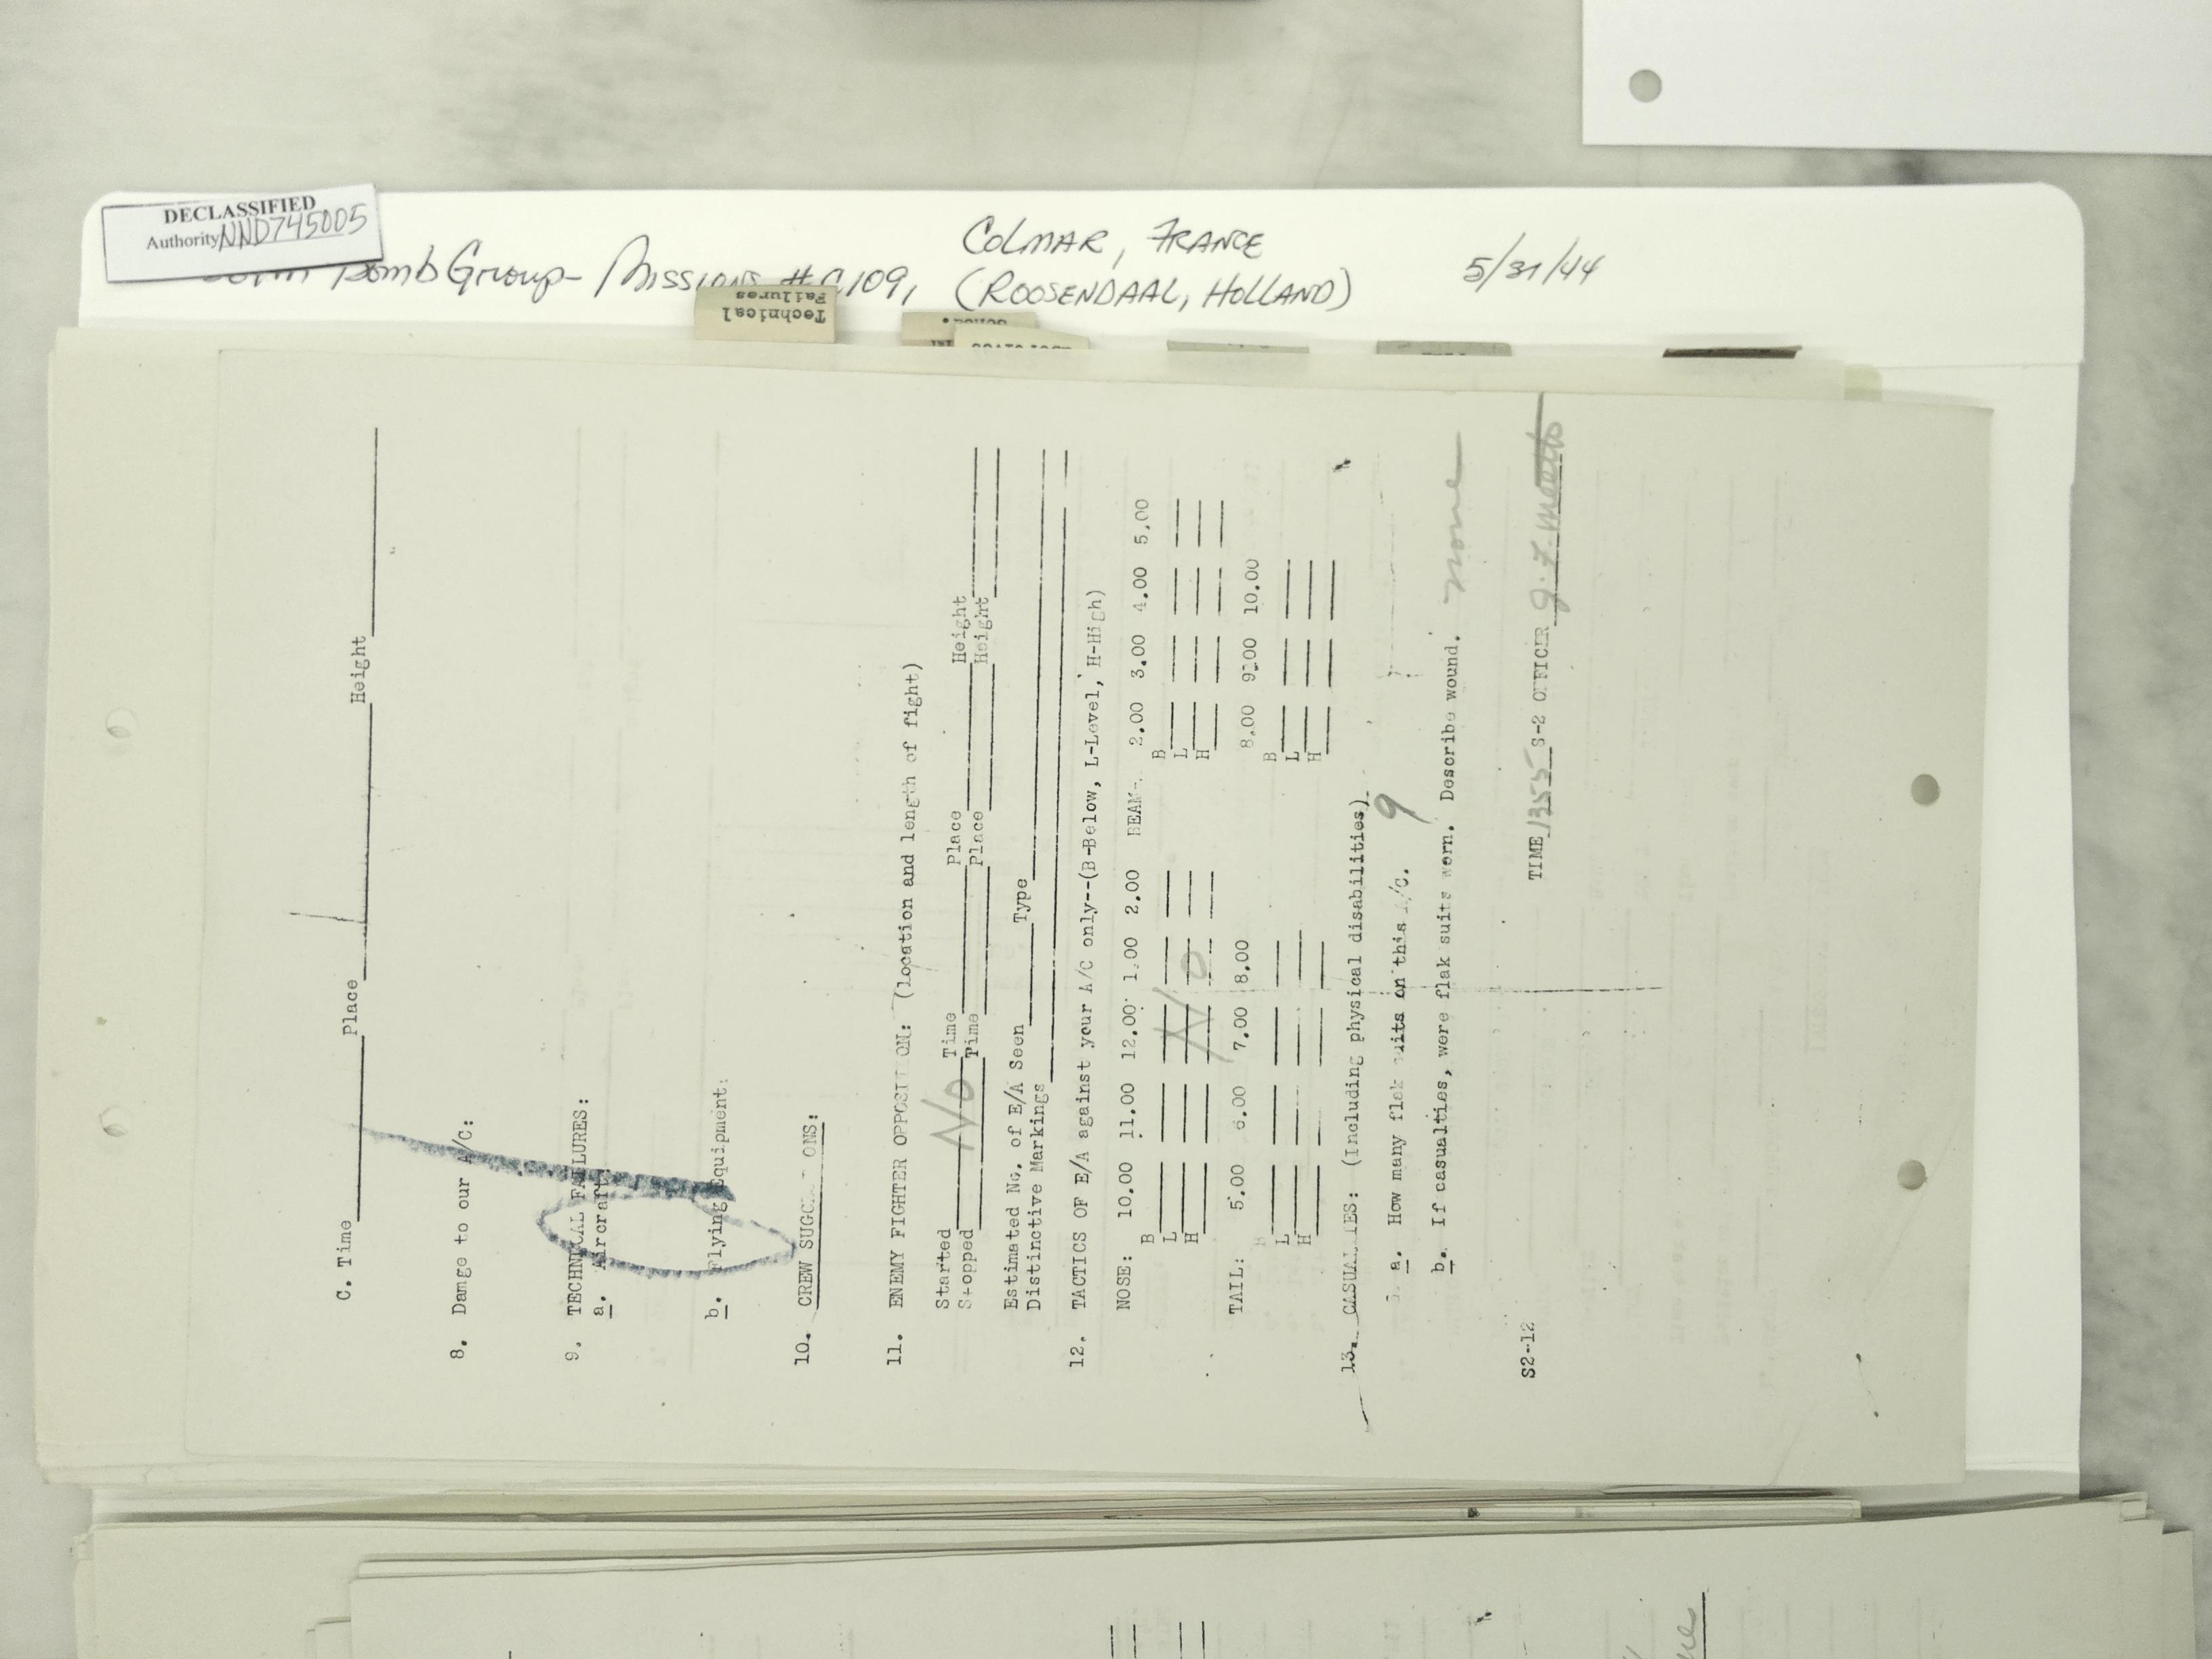 DECLASSIFIED
Authority NND745005
Bomb Group - Missions # 109,
COLMAR, FRANCE
(ROOSENDAAL, HOLLAND)
5/31/44
Technical
Failures
C. Time Place Height
8. Damge to our A/C:
9. TECHNICAL FAILURES:
a. Aircraft
b. Flying Equipment:
10. CREW SUGGESTIONS:
11. ENEMY FIGHTER OPPOSITION: (location and length of fight)
Started No Time Place Height
Stopped Time Place Height
Estimated No. of E/A Seen Type
Distinctive Markings
12. TACTICS OF E/A against your A/C only--(B-Below, L-Level, H-High)
NOSE: 10.00 11.00 12.00 1.00 2.00 BEAM- 2.00 3.00 4.00 5.00
B B
L No L
H H
TAIL: 5.00 6.00 7.00 8.00 8.00 9.00 10.00
B B
L L
H H
13. CASUALTIES: (Including physical disabilities)
a. How many flak suits on this A/C. 9
b. If casualties, were flak suits worn. Describe wound. none
S2-12 TIME 1355 S-2 OFFICER